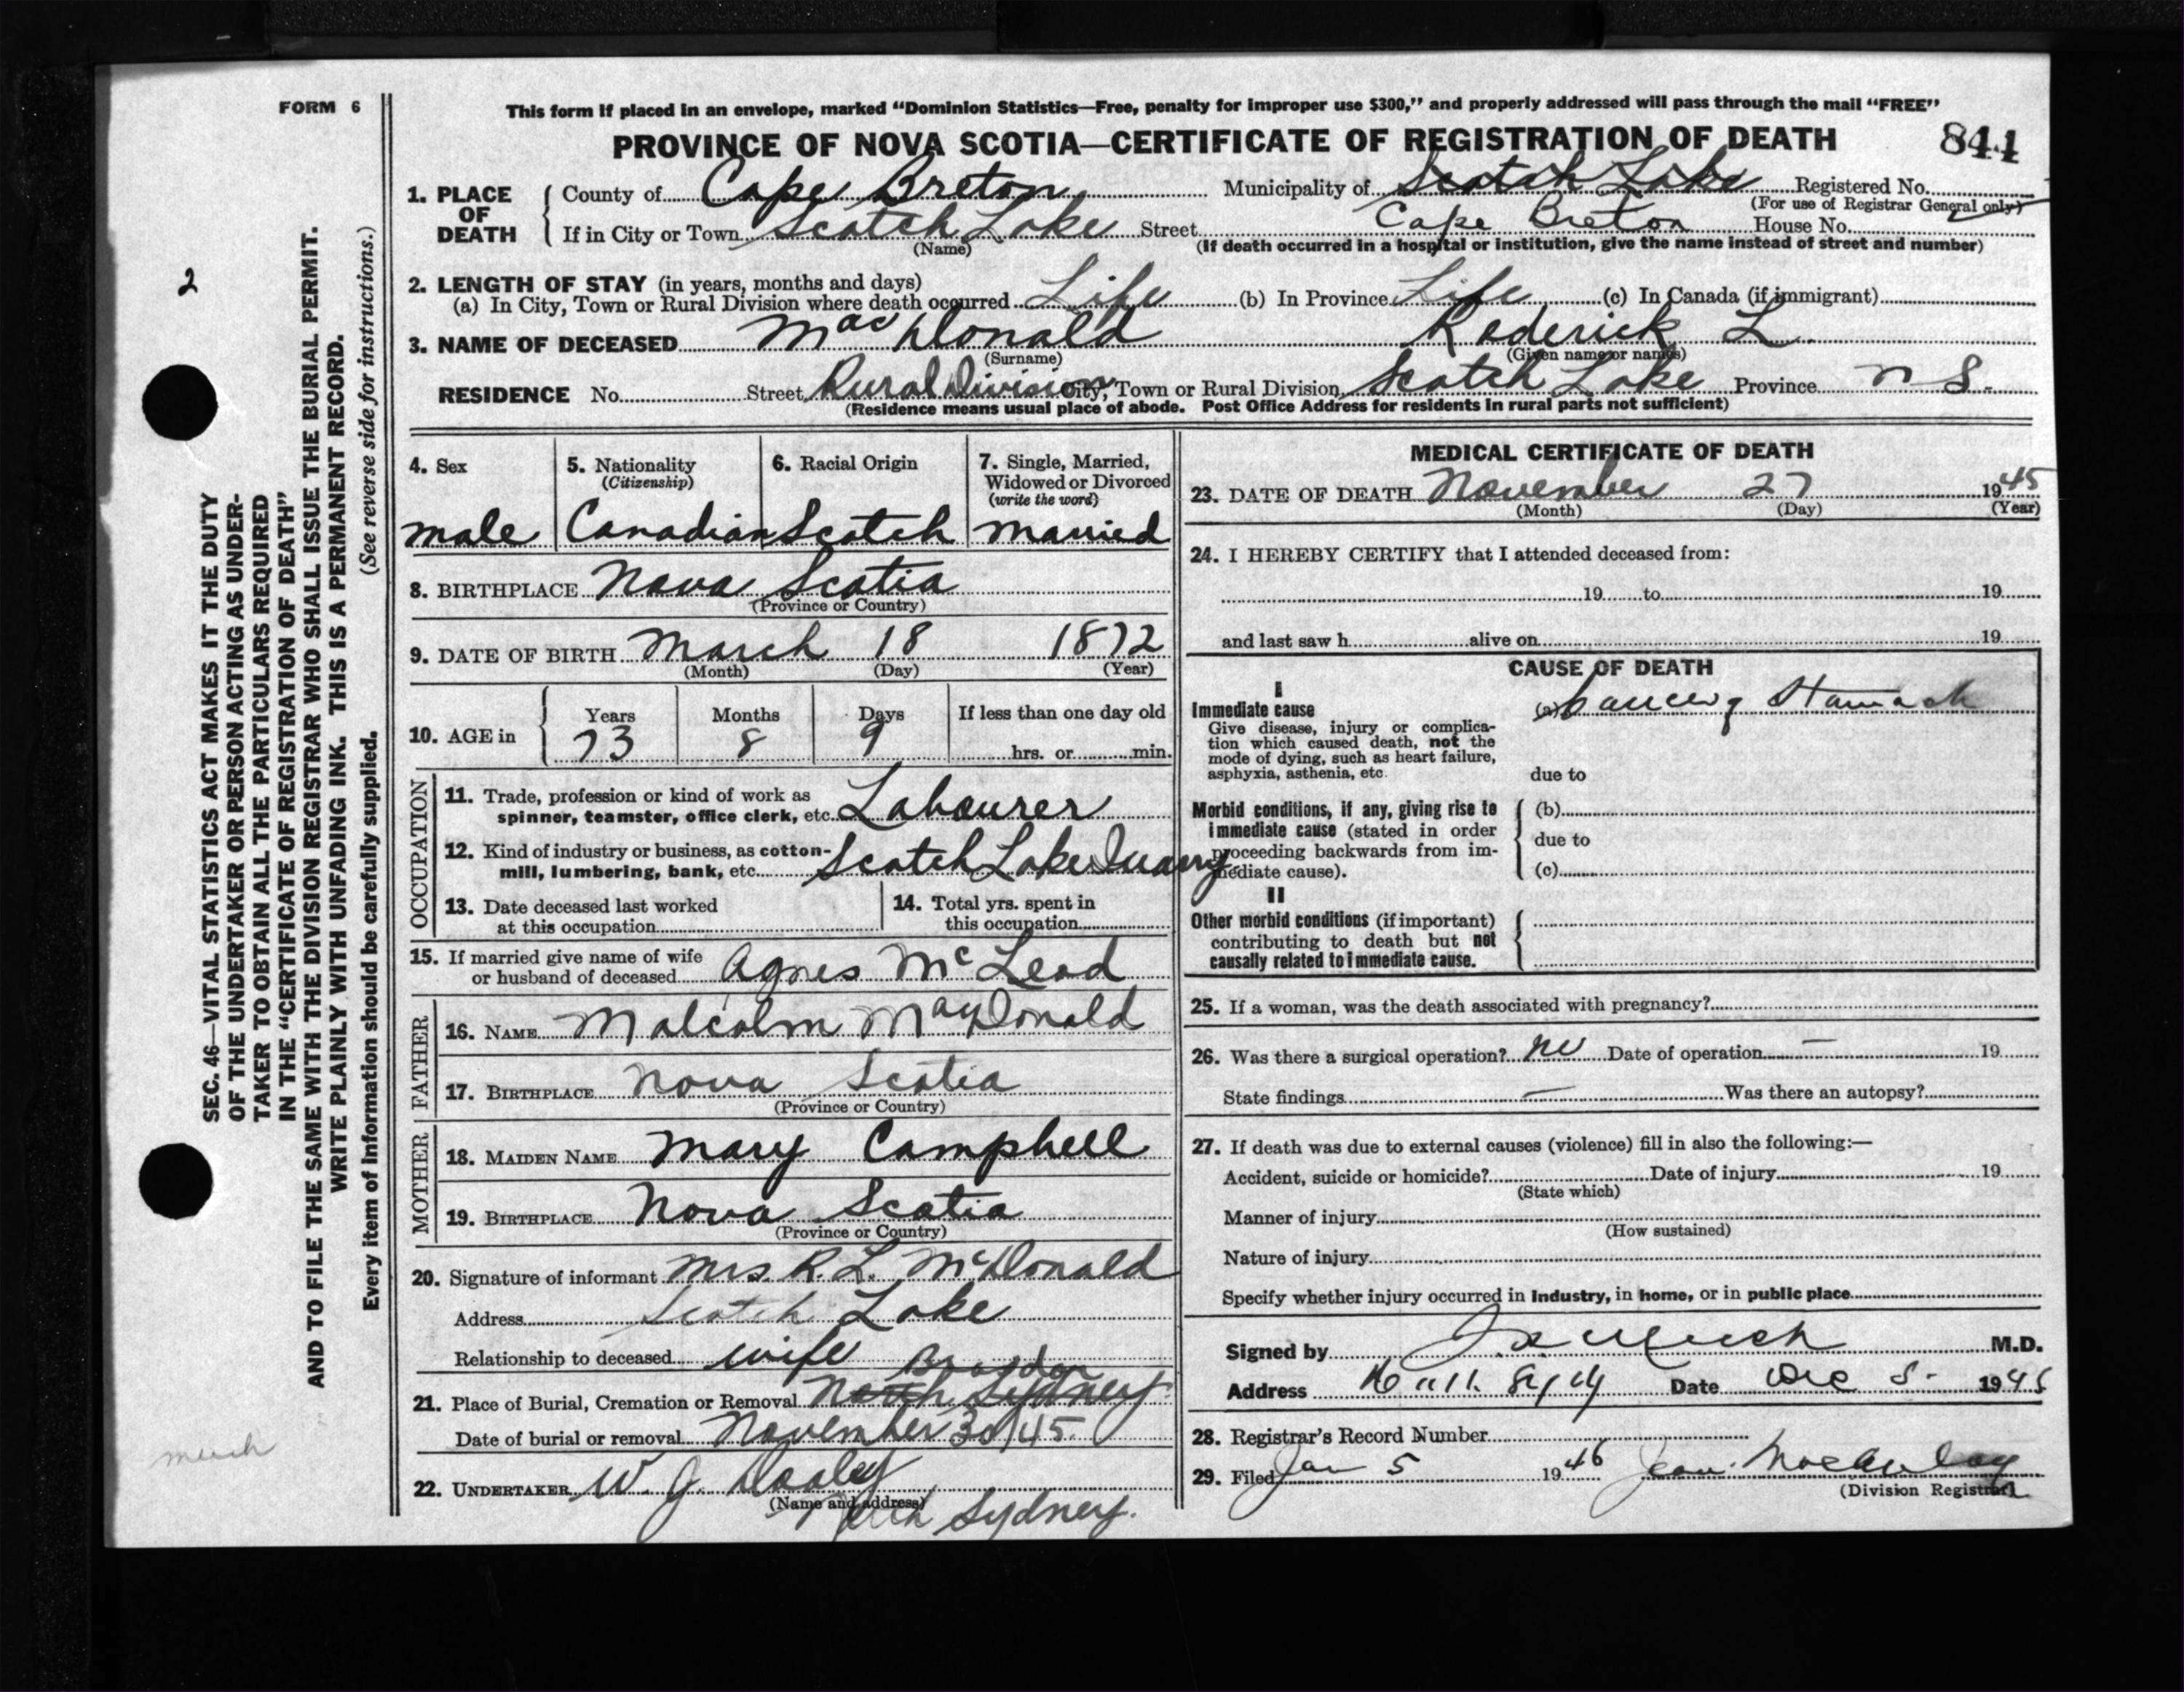 FORM 6
This form if placed in an envelope, marked “Dominion Statistics—Free, penalty for improper use $300,” and properly addressed will pass through the mail “FREE”
PROVINCE OF NOVA SCOTIA—CERTIFICATE OF REGISTRATION OF DEATH
844
1. PLACE OF DEATH
County of Cape Breton Municipality of Scotch Lake Registered No.
(For use of Registrar General only)
Cape Breton
If in City or Town Scotch Lake Street House No.
(Name) (If death occurred in a hospital or institution, give the name instead of street and number)
2. LENGTH OF STAY (in years, months and days)
(a) In City, Town or Rural Division where death occurred Life (b) In Province Life (c) In Canada (if immigrant)
3. NAME OF DECEASED MacDonald Roderick L.
(Surname) (Given name or names)
RESIDENCE No. Street Rural Division City, Town or Rural Division Scotch Lake Province N S.
(Residence means usual place of abode. Post Office Address for residents in rural parts not sufficient)
4. Sex
male
5. Nationality
(Citizenship)
Canadian
6. Racial Origin
Scotch
7. Single, Married, Widowed or Divorced
(write the word)
Married
8. BIRTHPLACE Nova Scotia
(Province or Country)
9. DATE OF BIRTH March 18 1872
(Month) (Day) (Year)
10. AGE in
Years Months Days If less than one day old
73 8 9 hrs. or min.
OCCUPATION
11. Trade, profession or kind of work as
spinner, teamster, office clerk, etc. Labourer
12. Kind of industry or business, as cotton-
mill, lumbering, bank, etc. Scotch Lake Quarry
13. Date deceased last worked
at this occupation
14. Total yrs. spent in
this occupation
15. If married give name of wife
or husband of deceased Agnes McLeod
FATHER
16. NAME Malcolm MacDonald
17. BIRTHPLACE Nova Scotia
(Province or Country)
MOTHER
18. MAIDEN NAME Mary Campbell
19. BIRTHPLACE Nova Scotia
(Province or Country)
20. Signature of informant Mrs. R. L. McDonald
Address Scotch Lake
Relationship to deceased wife
21. Place of Burial, Cremation or Removal North Sydney
Date of burial or removal November 30/45.
22. UNDERTAKER W. J. Dooley
(Name and address)
North Sydney.
MEDICAL CERTIFICATE OF DEATH
23. DATE OF DEATH November 27 1945
(Month) (Day) (Year)
24. I HEREBY CERTIFY that I attended deceased from:
19 to 19
and last saw h alive on 19
CAUSE OF DEATH
I
Immediate cause
Give disease, injury or complica-
tion which caused death, not the
mode of dying, such as heart failure,
asphyxia, asthenia, etc.
(a) Cancer of Stomach
due to
Morbid conditions, if any, giving rise to
immediate cause (stated in order
proceeding backwards from im-
mediate cause).
(b)
due to
(c)
II
Other morbid conditions (if important)
contributing to death but not
causally related to immediate cause.
25. If a woman, was the death associated with pregnancy?
26. Was there a surgical operation? no Date of operation — 19
State findings — Was there an autopsy?
27. If death was due to external causes (violence) fill in also the following:—
Accident, suicide or homicide? Date of injury 19
(State which)
Manner of injury
(How sustained)
Nature of injury
Specify whether injury occurred in industry, in home, or in public place
Signed by M.D.
Address Date Dec 5- 1945
28. Registrar's Record Number
29. Filed Jan 5 1946 Jean
(Division Registrar)
2
SEC. 46—VITAL STATISTICS ACT MAKES IT THE DUTY
OF THE UNDERTAKER OR PERSON ACTING AS UNDER-
TAKER TO OBTAIN ALL THE PARTICULARS REQUIRED
IN THE “CERTIFICATE OF REGISTRATION OF DEATH”
AND TO FILE THE SAME WITH THE DIVISION REGISTRAR WHO SHALL ISSUE THE BURIAL PERMIT.
WRITE PLAINLY WITH UNFADING INK. THIS IS A PERMANENT RECORD.
Every item of information should be carefully supplied. (See reverse side for instructions.)